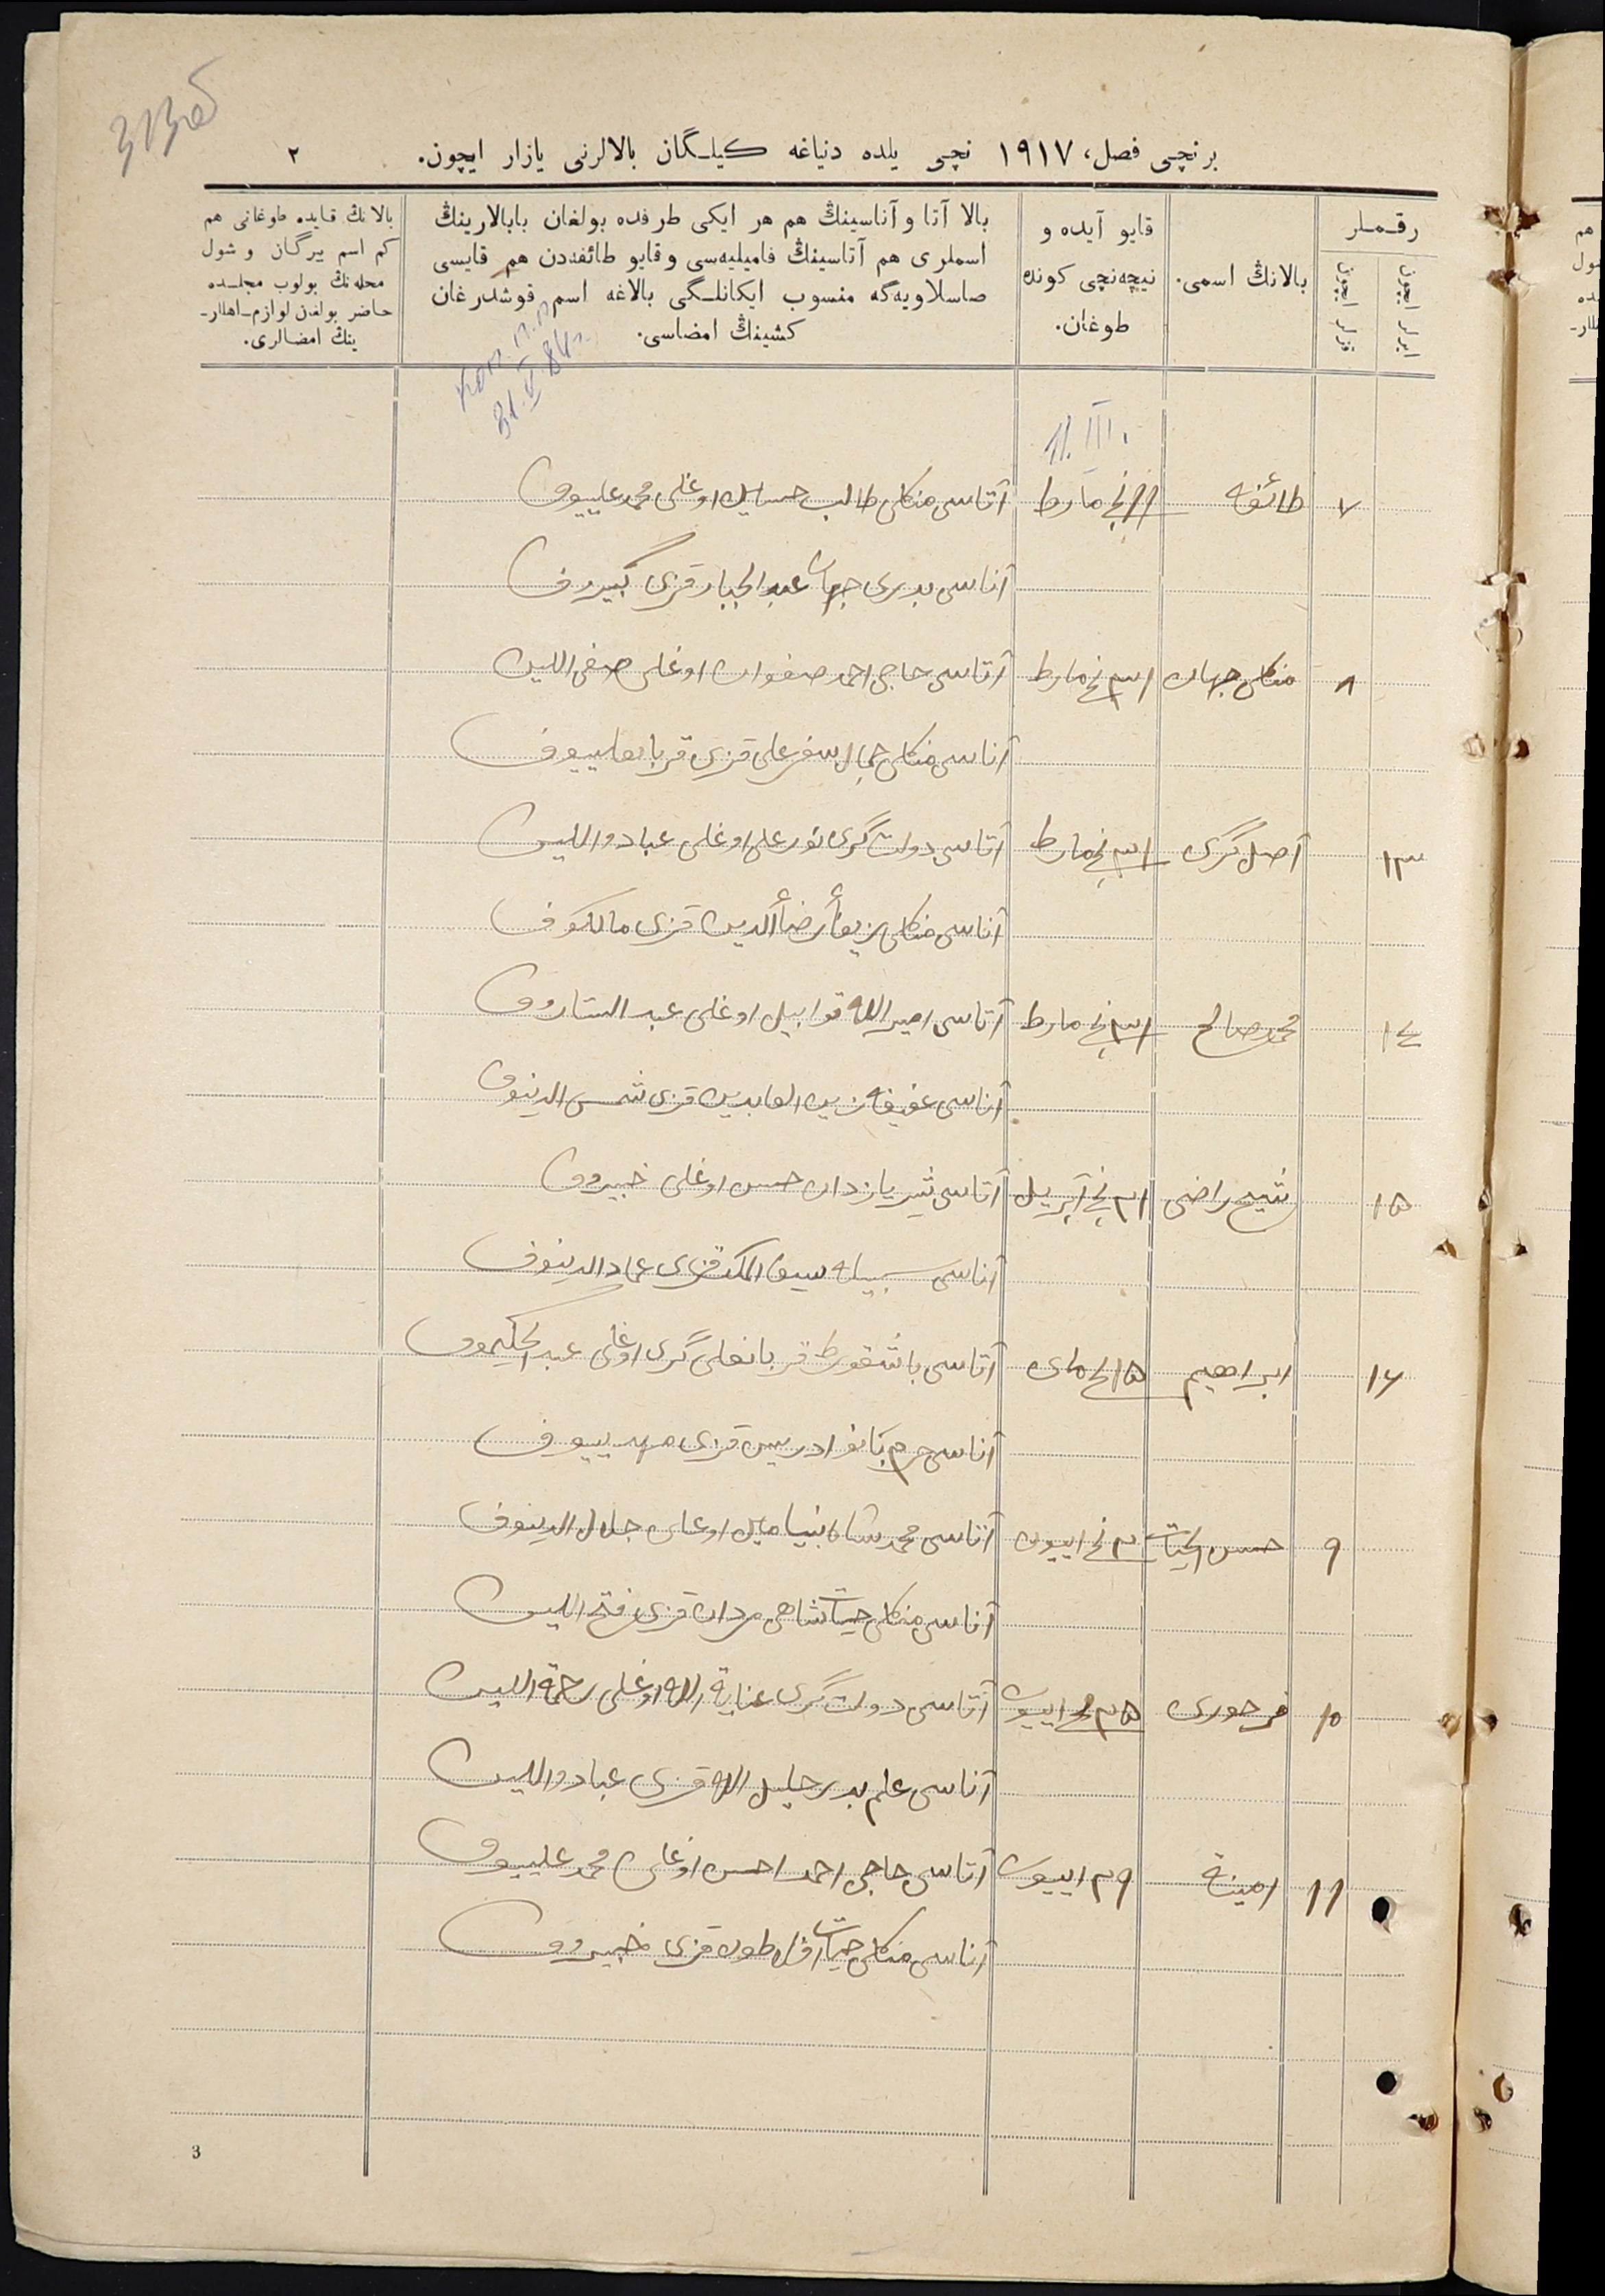 برنچی فصل، ۱۹۱۷ نچی یلده دنیاغه کیلـگان بالالرنی یازار ایچون.
۲
رقـمـلر
ایرلر ایچون
قزلر ایچون
بالانڭ اسمی.
قایو آیده و
نیچه‌نچی کونده
طوغان.
بالا آتا و آناسینڭ هم هر ایکی طرفده بولغان بابالارینڭ
اسملری هم آتاسینڭ فامیلیه‌سی و قایو طائفه‌دن هم قایسی
صاسلاویه‌گه منسوب ایکانلـگی بالاغه اسم قوشدرغان
کشینڭ امضاسی.
بالانڭ قایده طوغانی هم
کم اسم بیرگان و شول
محله‌نڭ بولوب مجلـسده
حاضر بولغان لوازم-اهللر-
ینڭ امضالری.
31.V.84г.
11.III.
۷ طائفه ۱۱نچی مارط آتاسی منکلی طالب حسایل اوغلی محمدعلییوف
آناسی بدری جهان عبدالجبار قزی کبیروف
۸ منکلی جهان ۳۱نچی مارط آتاسی حاجی احمد صفوان اوغلی صفی اللین
آناسی منکلی جمال سفرعلی قزی قربانعلییوف
۱۳ آصل گری ۳۱نچی مارط آتاسی دولت گری نورعلی اوغلی عبادواللین
آناسی منکلی زیفا رضاءالدین قزی مالکوف
۱٤ محمدصالح ۳۱نچی مارط آتاسی امیرالله قوابیل اوغلی عبدالستاروف
آناسی عفیفه زین العابدین قزی شمس الدینوف
۱۵ شیخ راضی ۲۱نچی آپریل آتاسی شیریازدان حسن اوغلی خبیروف
آناسی سیف الملک قزی عمادالدینوف
۱۶ ابراهیم ۱۵نچی مای آتاسی باشقورط قربانعلی گری اوغلی عبدالحکیموف
آناسی حرم بانو ادریس قزی مهدییوف
۹ حسن الحیات ۲نچی اییون آتاسی محمدشاه بنیامین اوغلی جلال الدینوف
آناسی منکلی حیات شاهی مردان قزی فتح اللین
۱۰ قمرحوری ۲۵نچی اییون آتاسی دولت گری عنایة الله اوغلی رحمة اللین
آناسی علم بدر خلیل الله قزی عبادواللین
۱۱ امینة ۲۹ اییون آتاسی حاجی احمد احسن اوغلی محمدعلییوف
آناسی منکلی حیات افلاطون قزی خبیروف
3